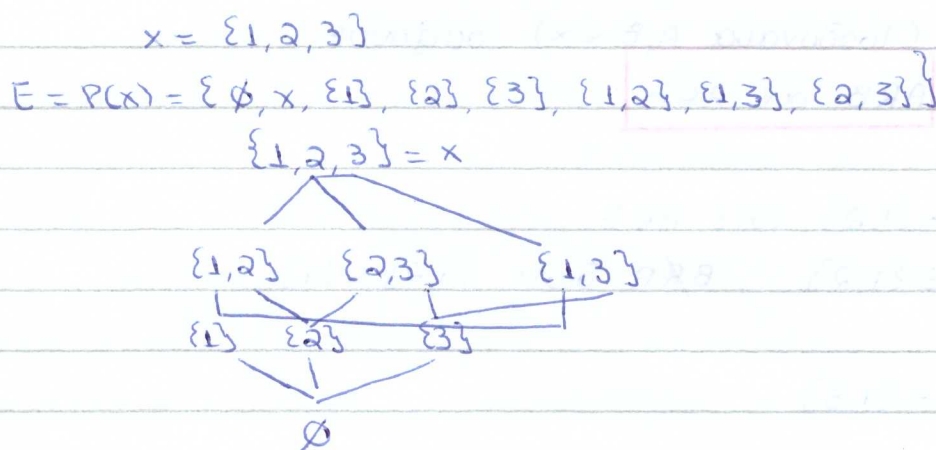 x = {1, 2, 3}
E = P(x) = {∅, x, {1}, {2} {3}, {1,2}, {1,3}, {2,3}}
{1, 2, 3} = x
{1,2} {2,3} {1,3}
{1} {2} {3}
∅